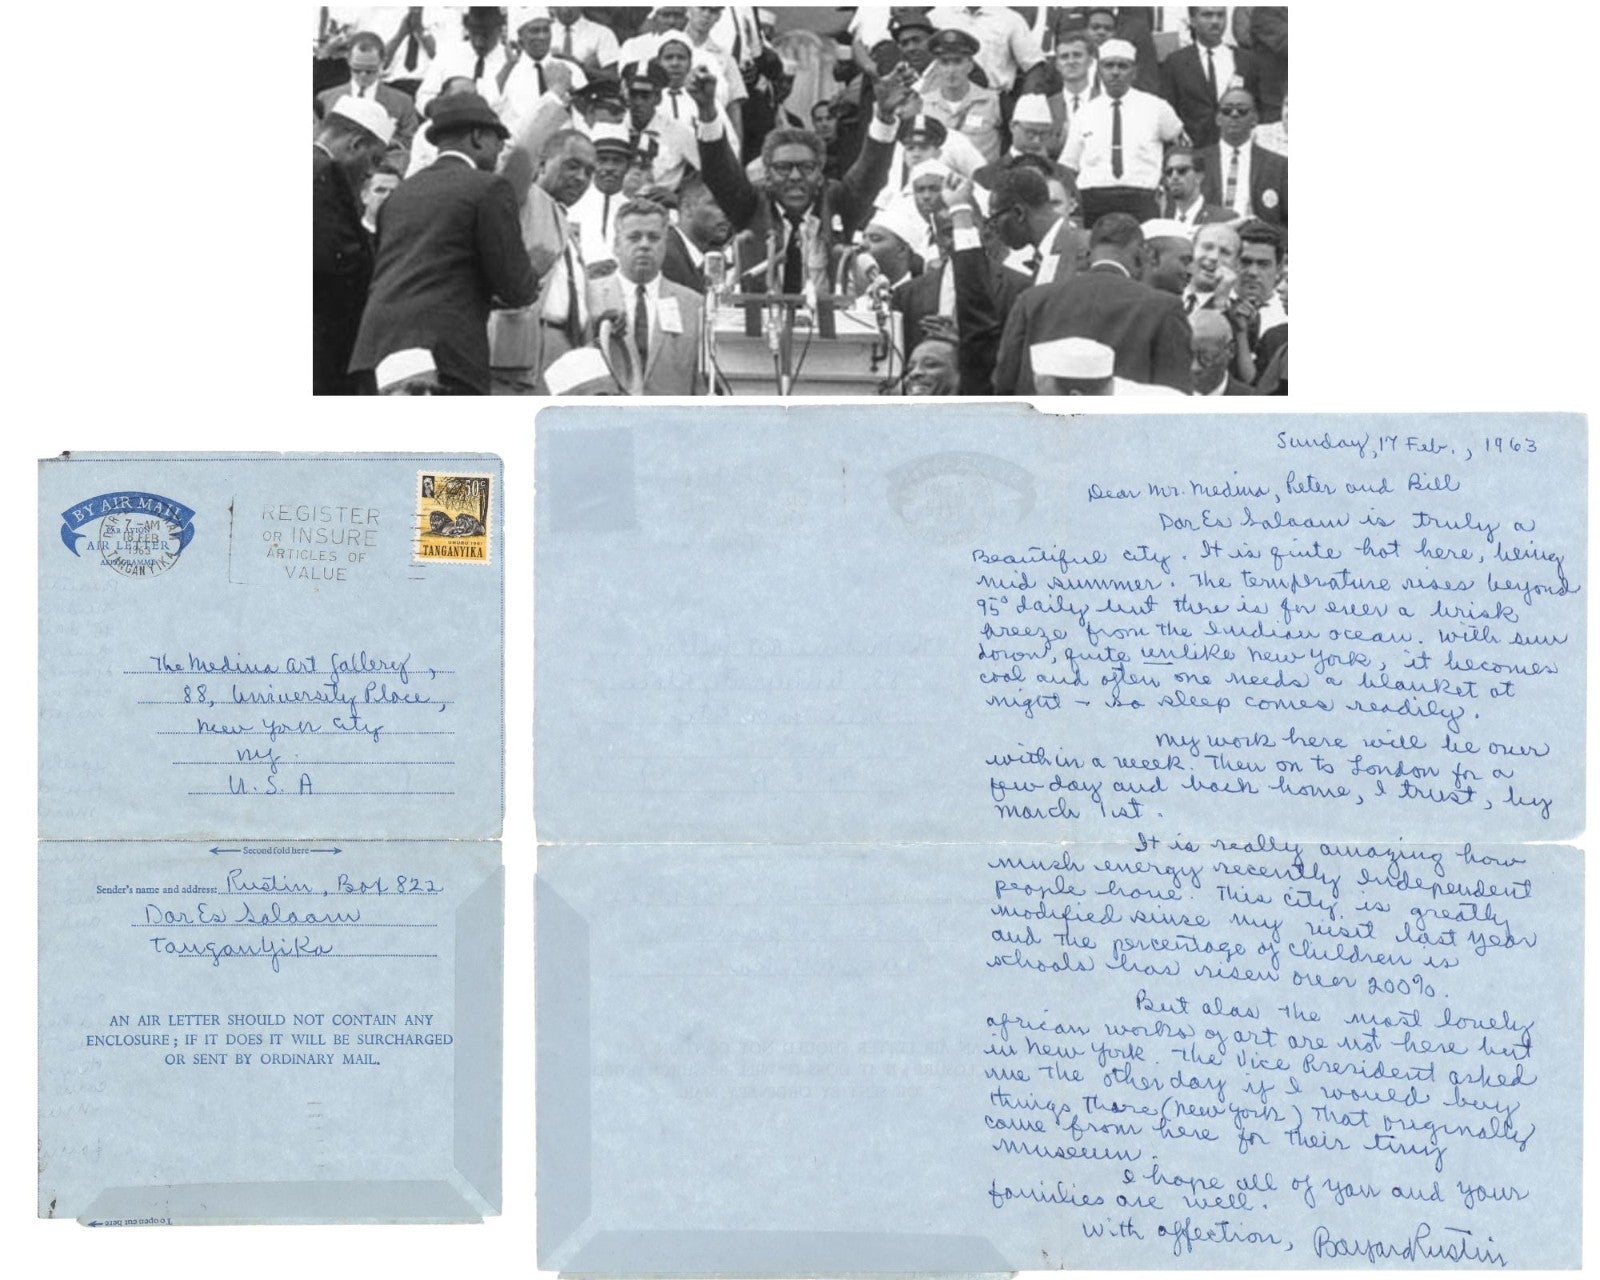 BY AIR MAIL
PAR AVION
AIR LETTER
AEROGRAMME
7-AM
18 FEB
1963
TANGANYIKA
REGISTER
OR INSURE
ARTICLES OF
VALUE
50c
UHURU 1961
TANGANYIKA
The Medina Art Gallery,
88, University Place,
New York City
NY.
U.S.A
Second fold here
Sender's name and address: Rustin, Box 822
Dar Es Salaam
TanganYiKa
AN AIR LETTER SHOULD NOT CONTAIN ANY
ENCLOSURE; IF IT DOES IT WILL BE SURCHARGED
OR SENT BY ORDINARY MAIL.
To open cut here
Sunday, 17 Feb., 1963
Dear Mr. Medina, Peter and Bill
Dar Es Salaam is truly a
Beautiful city. It is quite hot here, being
mid summer. The temperature rises beyond
95° daily but there is for ever a brisk
breeze from the Indian ocean. With sun
down, quite unlike New York, it becomes
cool and often one needs a blanket at
night – so sleep comes readily.
My work here will be over
within a week. Then on to London for a
few day and back home, I trust, by
March 1st.
It is really amazing how
much energy recently Independent
people have. This city is greatly
modified since my visit last year
and the percentage of children is
schools has risen over 200%.
But alas the most lovely
african works of art are not here but
in New York. The Vice President asked
me the other day if I would buy
things there (New York) that originally
came from here for their tiny
museum.
I hope all of you and your
families are well.
With affection, Bayard Rustin